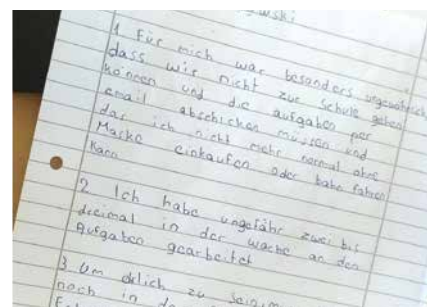 wski
1 Für mich war besonders ungewöhnlich
dass wir nicht zur Schule gehen
können und die aufgaben per
email abschicken müssen und
das ich nicht mehr normal ohne
Maske einkaufen oder bahn fahren
kann
2 Ich habe ungefähr zwei bis
dreimal in der woche an den
Aufgaben gearbeitet
3 Um ehlich zu sein
noch in